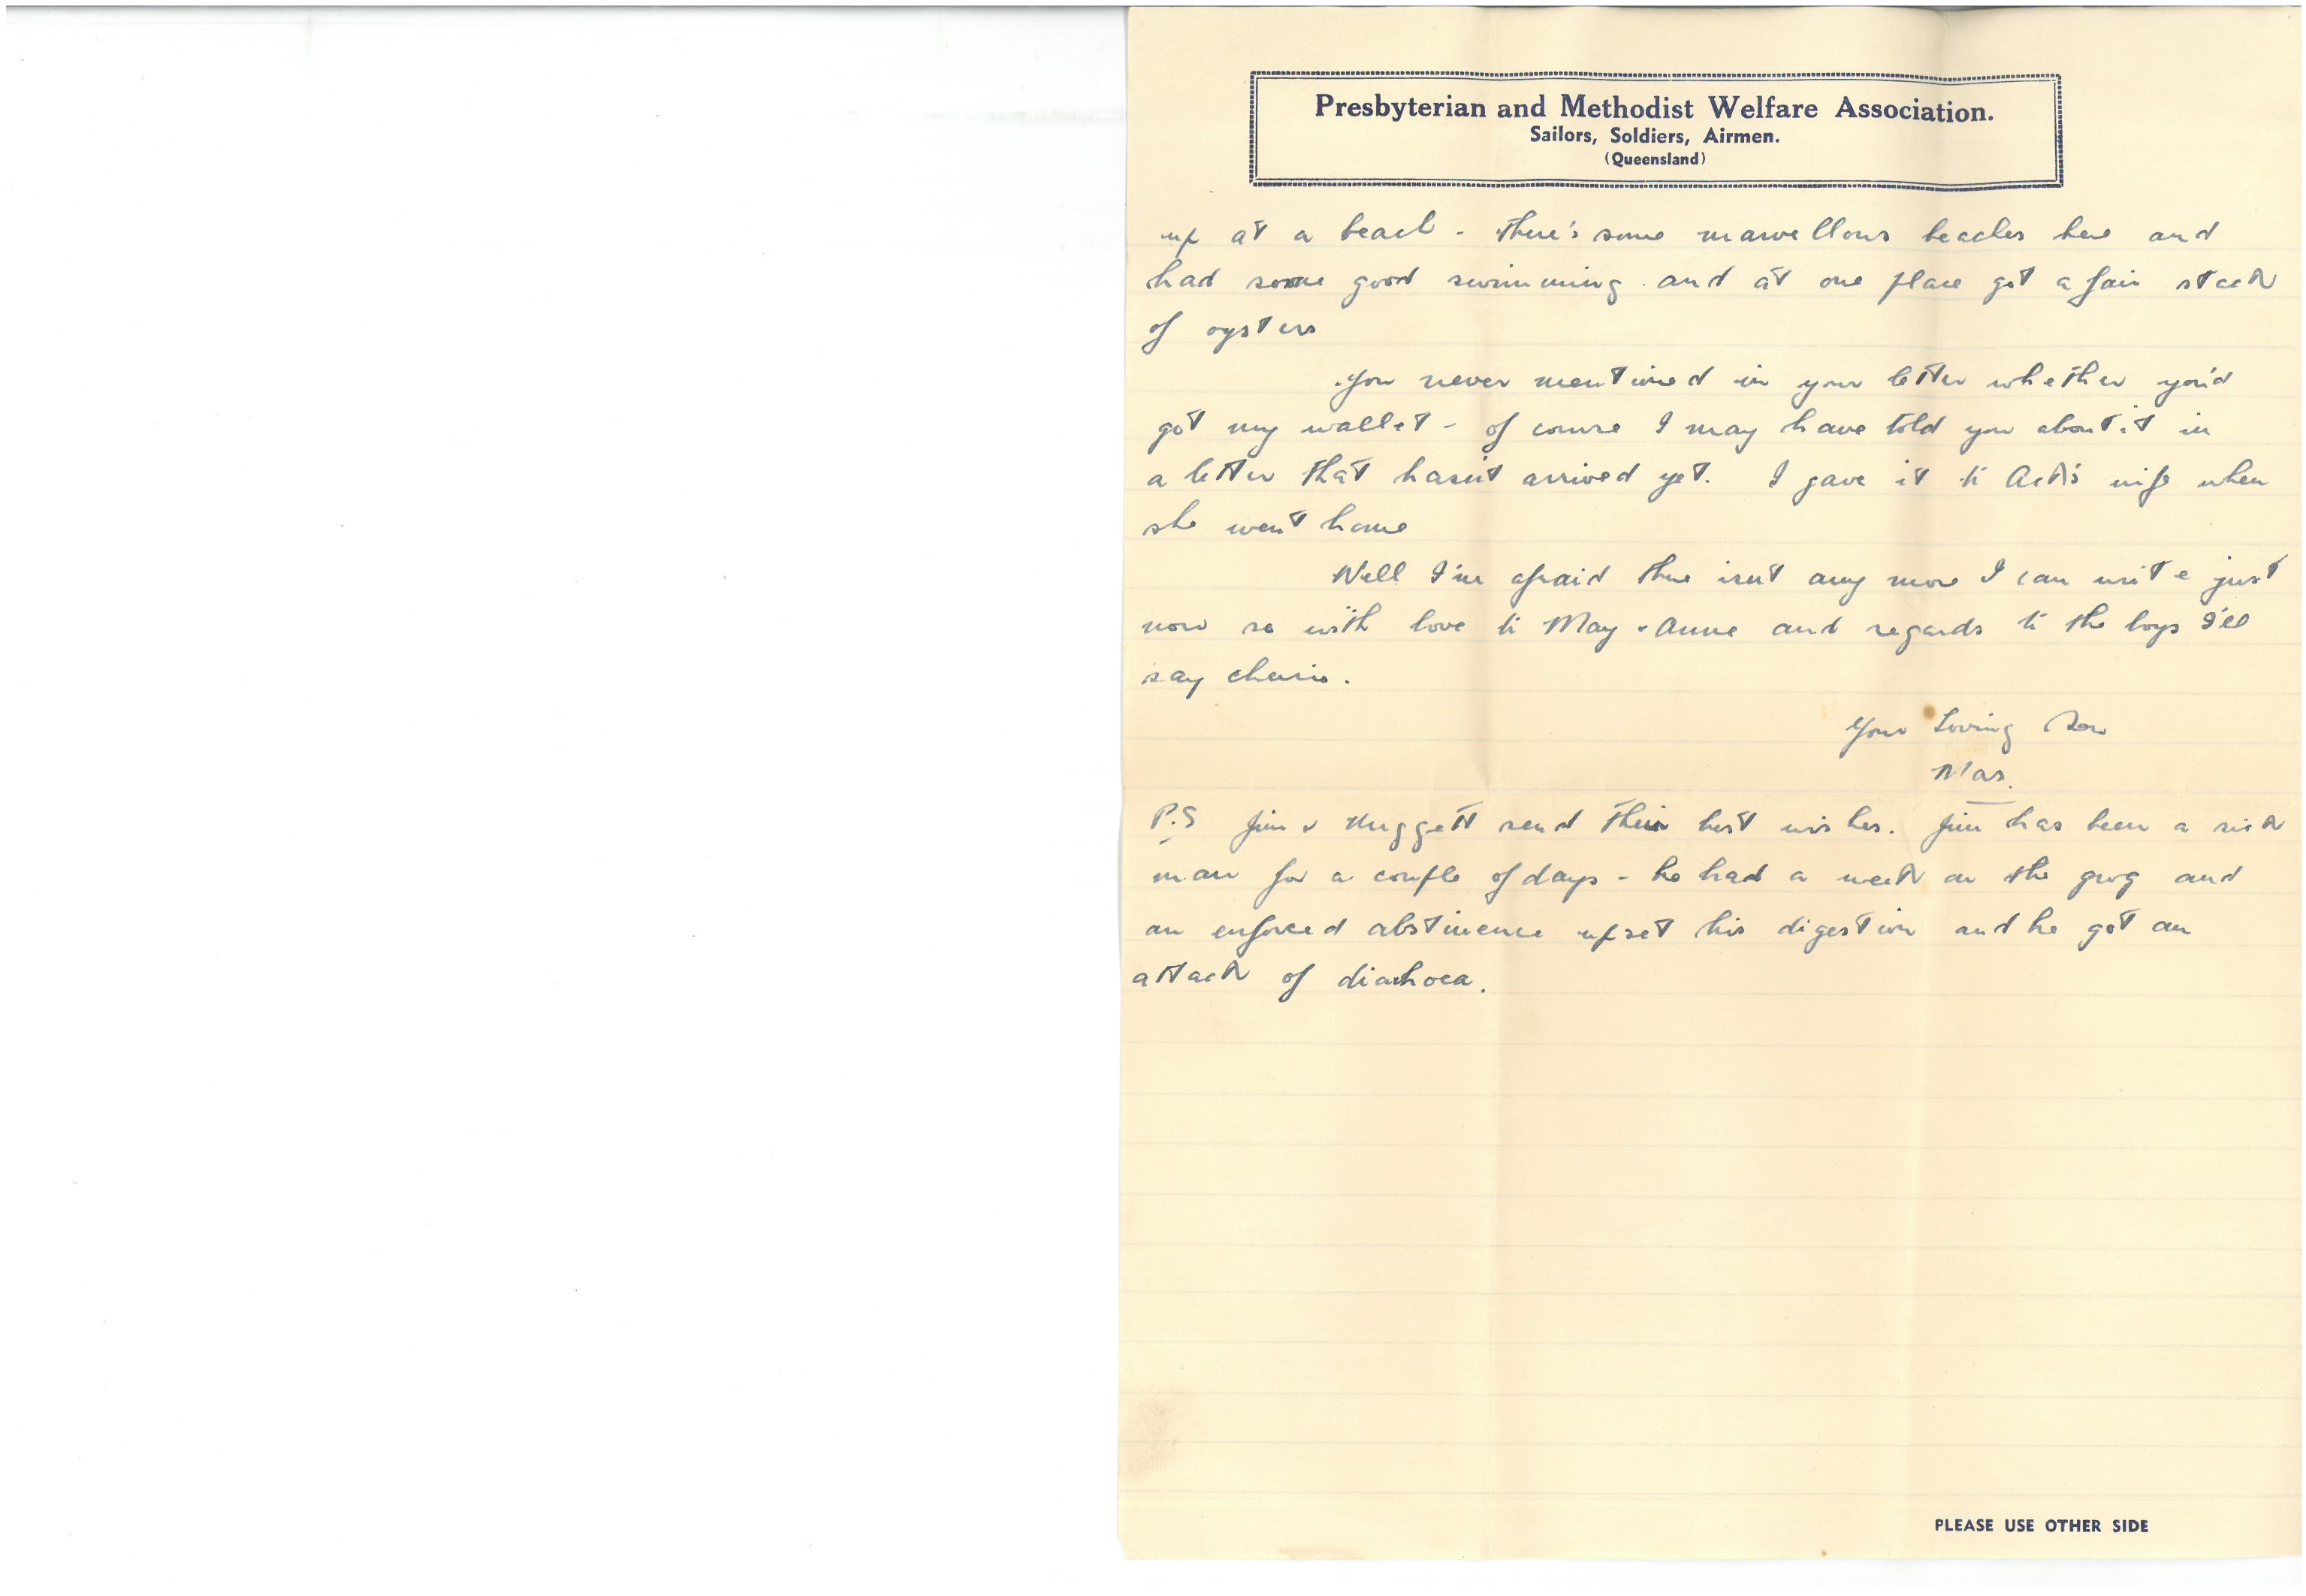 Presbyterian and Methodist Welfare Association.
Sailors, Soldiers, Airmen.
(Queensland)
up at a beach - there's some marvellous beaches here and
had some good swimming and at one place got a fair stack
of oysters
You never mentioned in your letter whether you'd
got my wallet - of course I may have told you about it in
a letter that hasn't arrived yet. I gave it to Ack's wife when
she went home
Well I'm afraid there isn't any more I can write just
now so with love to May & Anne and regards to the boys I'll
say cheerio.
Your Loving Son
Mas.
P.S Jim & Nuggett send their best wishes. Jim has been a sick
man for a couple of days - he had a week on the grog and
an enforced abstinence upset his digestion and he got an
attack of diarhoea.
PLEASE USE OTHER SIDE